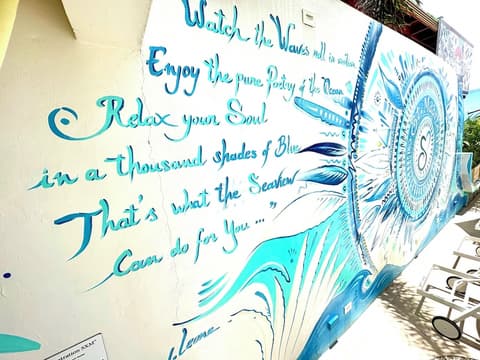 Watch the Waves roll in
Enjoy the pure Poetry of the Ocean
Relax your Soul
in a thousand shades of Blue
That's what the Seaview
Can do for You ..."
S